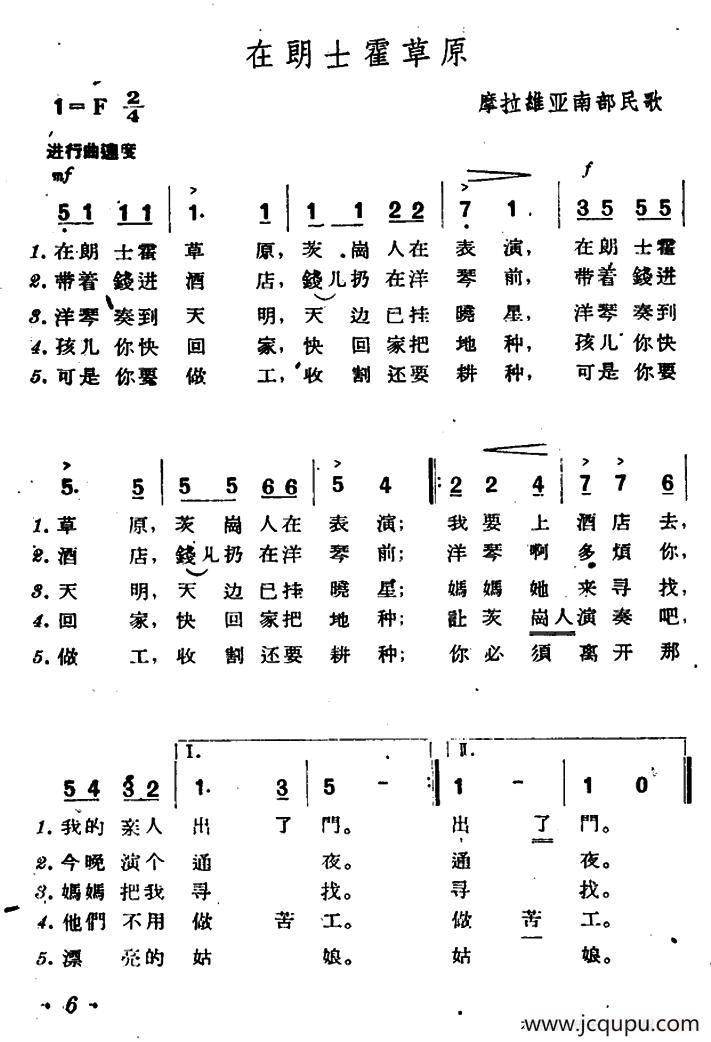 在朗士霍草原
1=F 2/4
摩拉雄亚南部民歌
进行曲速度
mf f
5 1 1 1 | 1. 1 | 1 1 2 2 | 7 1. | 3 5 5 5 |
1. 在朗士霍草原，茨崗人在表演，在朗士霍
2. 带着錢进酒店，錢儿扔在洋琴前，带着錢进
3. 洋琴奏到天明，天边已挂曉星，洋琴奏到
4. 孩儿你快回家，快回家把地种，孩儿你快
5. 可是你要做工，收割还要耕种，可是你要
5. 5 | 5 5 6 6 | 5 4 :||: 2 2 4 | 7 7 6 |
1. 草原，茨崗人在表演；我要上酒店去，
2. 酒店，錢儿扔在洋琴前；洋琴啊多煩你，
3. 天明，天边已挂曉星；媽媽她来寻找，
4. 回家，快回家把地种；让茨崗人演奏吧，
5. 做工，收割还要耕种；你必須离开那
I. II.
5 4 3 2 | 1. 3 | 5 - :|| 1 - | 1 0 ||
1. 我的亲人出了門。出了門。
2. 今晚演个通夜。通夜。
3. 媽媽把我寻找。寻找。
4. 他們不用做苦工。做苦工。
5. 漂亮的姑娘。姑娘。
6
www.jcqupu.com